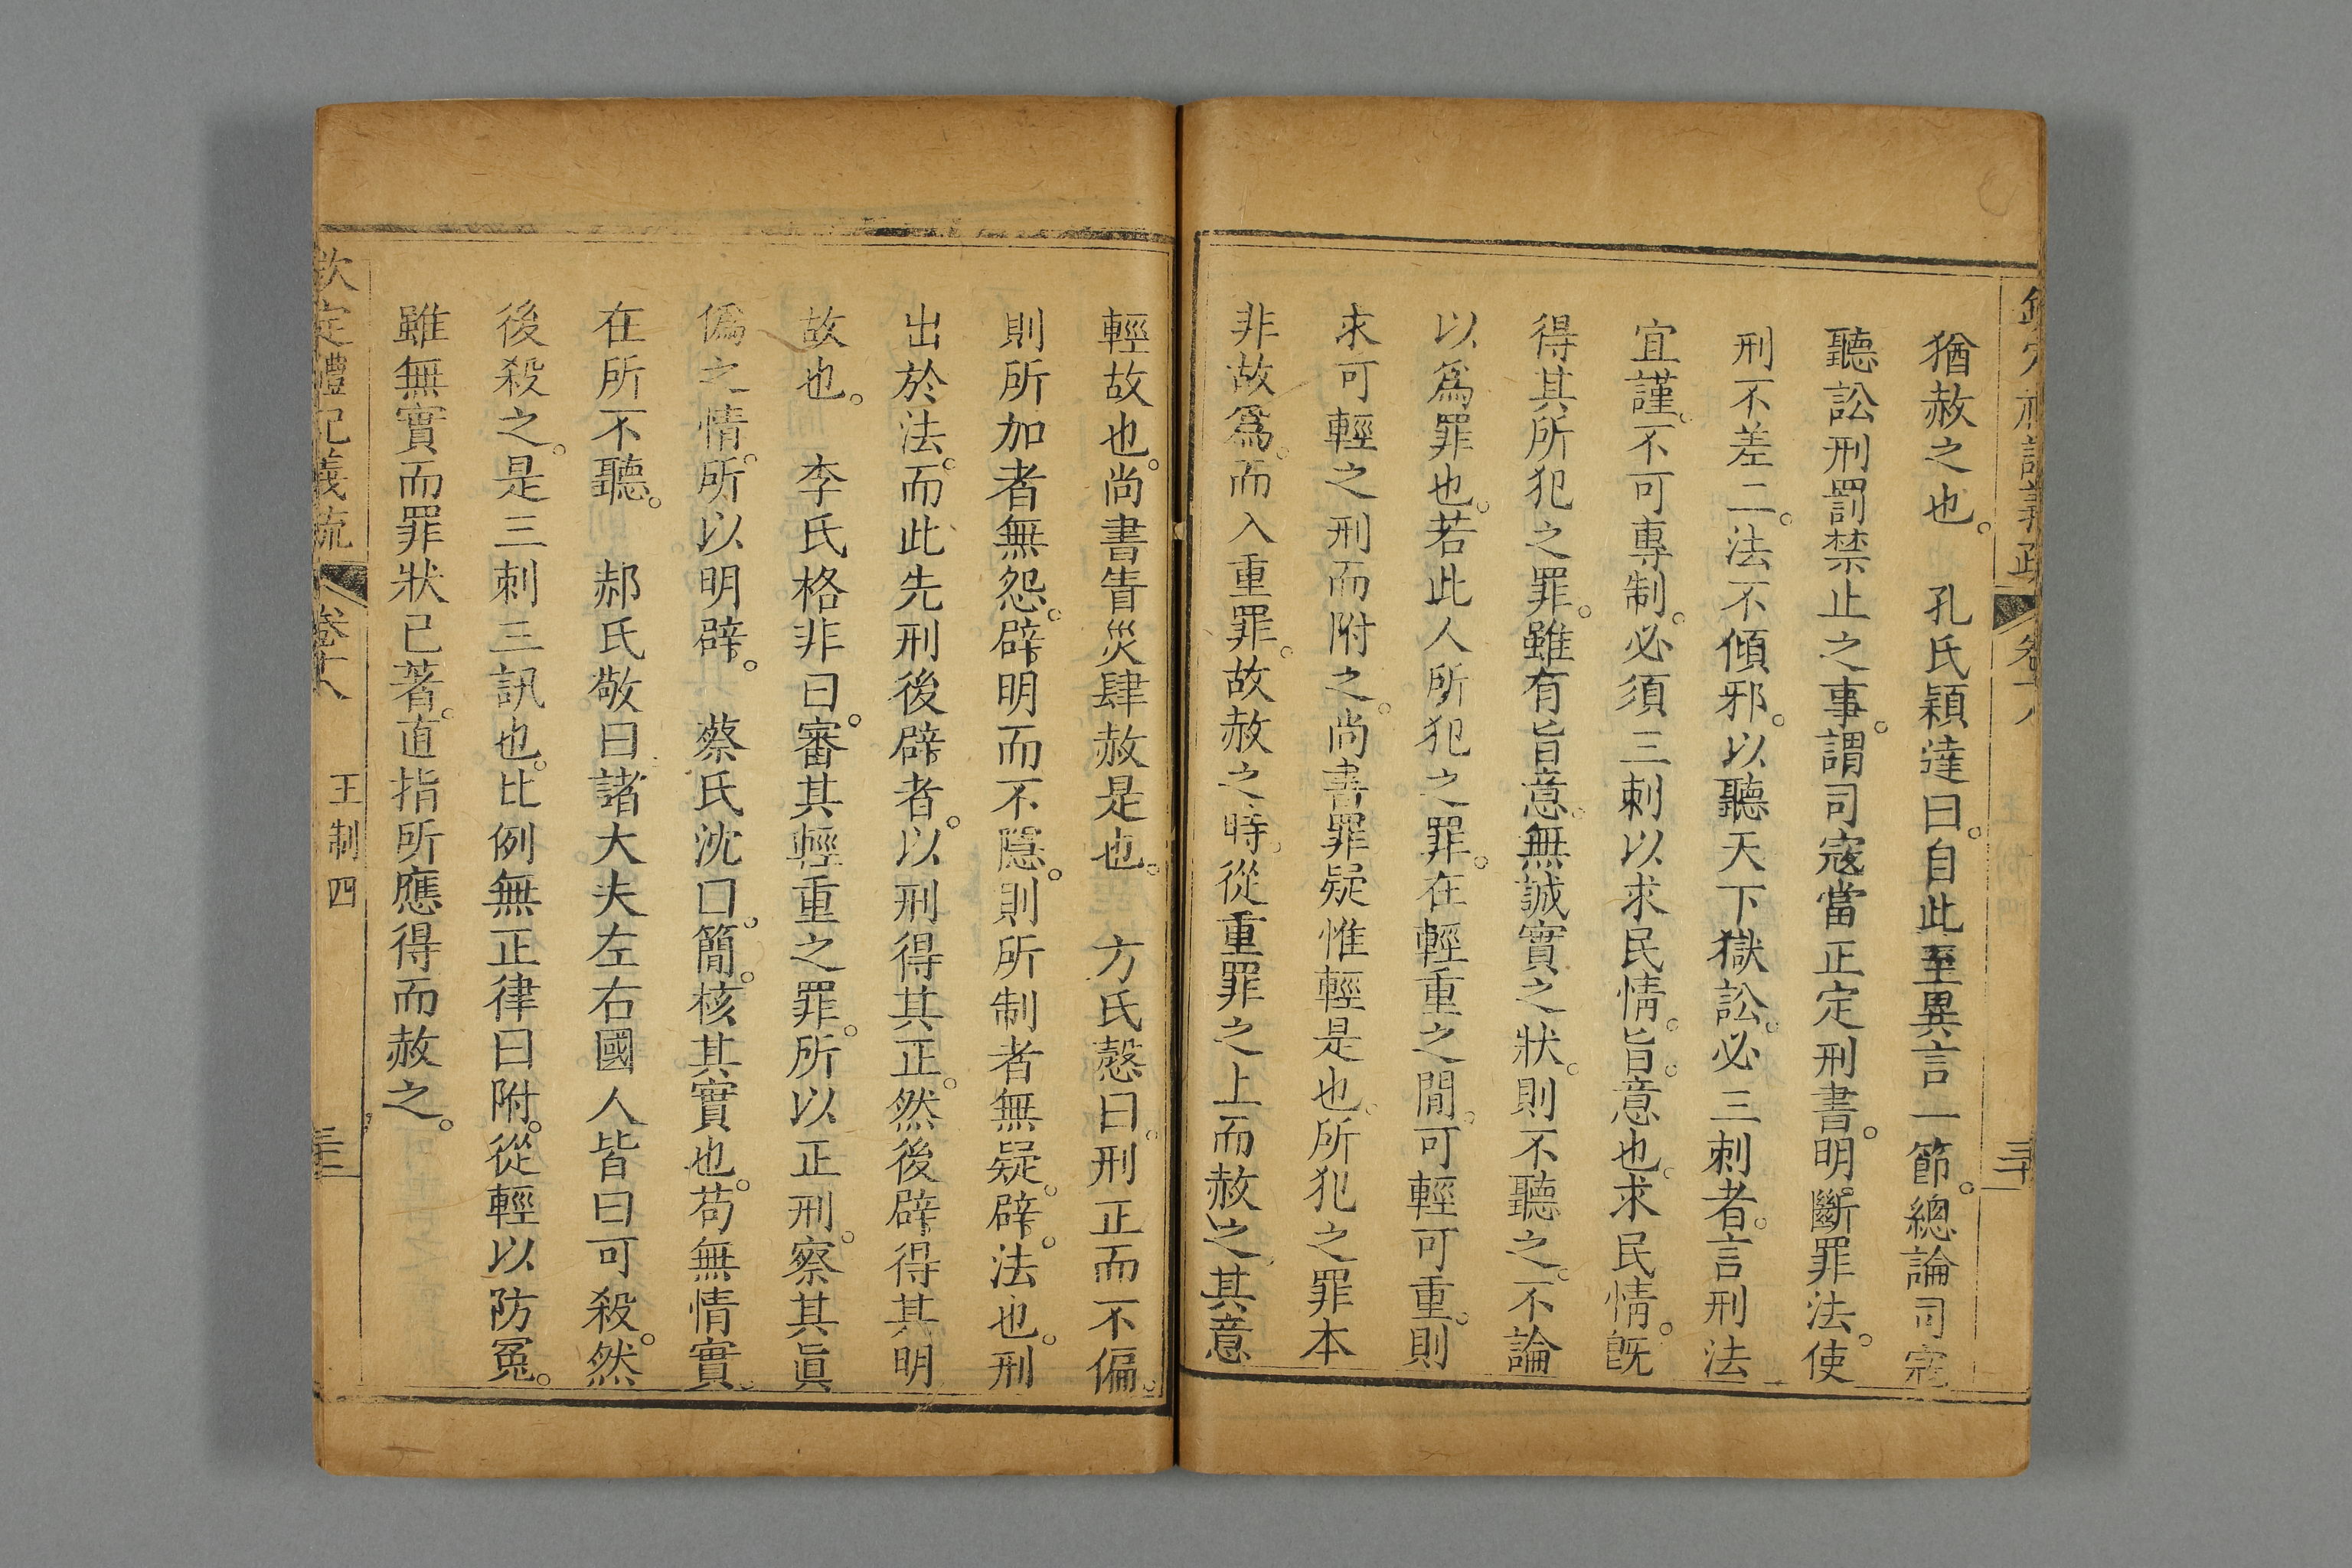 猶赦之也。　孔氏穎達曰。自此至異言一節。總論司寇
聽訟刑罰禁止之事。謂司寇當正定刑書。明斷罪法。使
刑不差二。法不傾邪。以聽天下獄訟。必三刺者。言刑法
宜謹。不可專制。必須三刺以求民情。旨。意也。求民情。既
得其所犯之罪。雖有旨意。無誠實之狀。則不聽之。不論
以爲罪也。若此人所犯之罪。在輕重之閒。可輕可重。則
求可輕之刑而附之。尚書罪疑惟輕是也。所犯之罪本
非故爲。而入重罪。故赦之時。從重罪之上而赦之。其意
輕故也。尚書眚災肆赦是也。　方氏慤曰。刑正而不偏。
則所加者無怨。辟明而不隱。則所制者無疑。辟。法也。刑
出於法。而此先刑後辟者。以刑得其正。然後辟得其明
故也。　李氏格非曰。審其輕重之罪。所以正刑。察其眞
僞之情。所以明辟。　蔡氏沈曰。簡。核其實也。苟無情實。
在所不聽。　郝氏敬曰諸大夫左右國人皆曰可殺。然
後殺之。是三刺三訊也。比例無正律曰附。從輕以防冤。
雖無實而罪狀已著。直指所應得而赦之。
欽定禮記義疏　卷十八　王制四